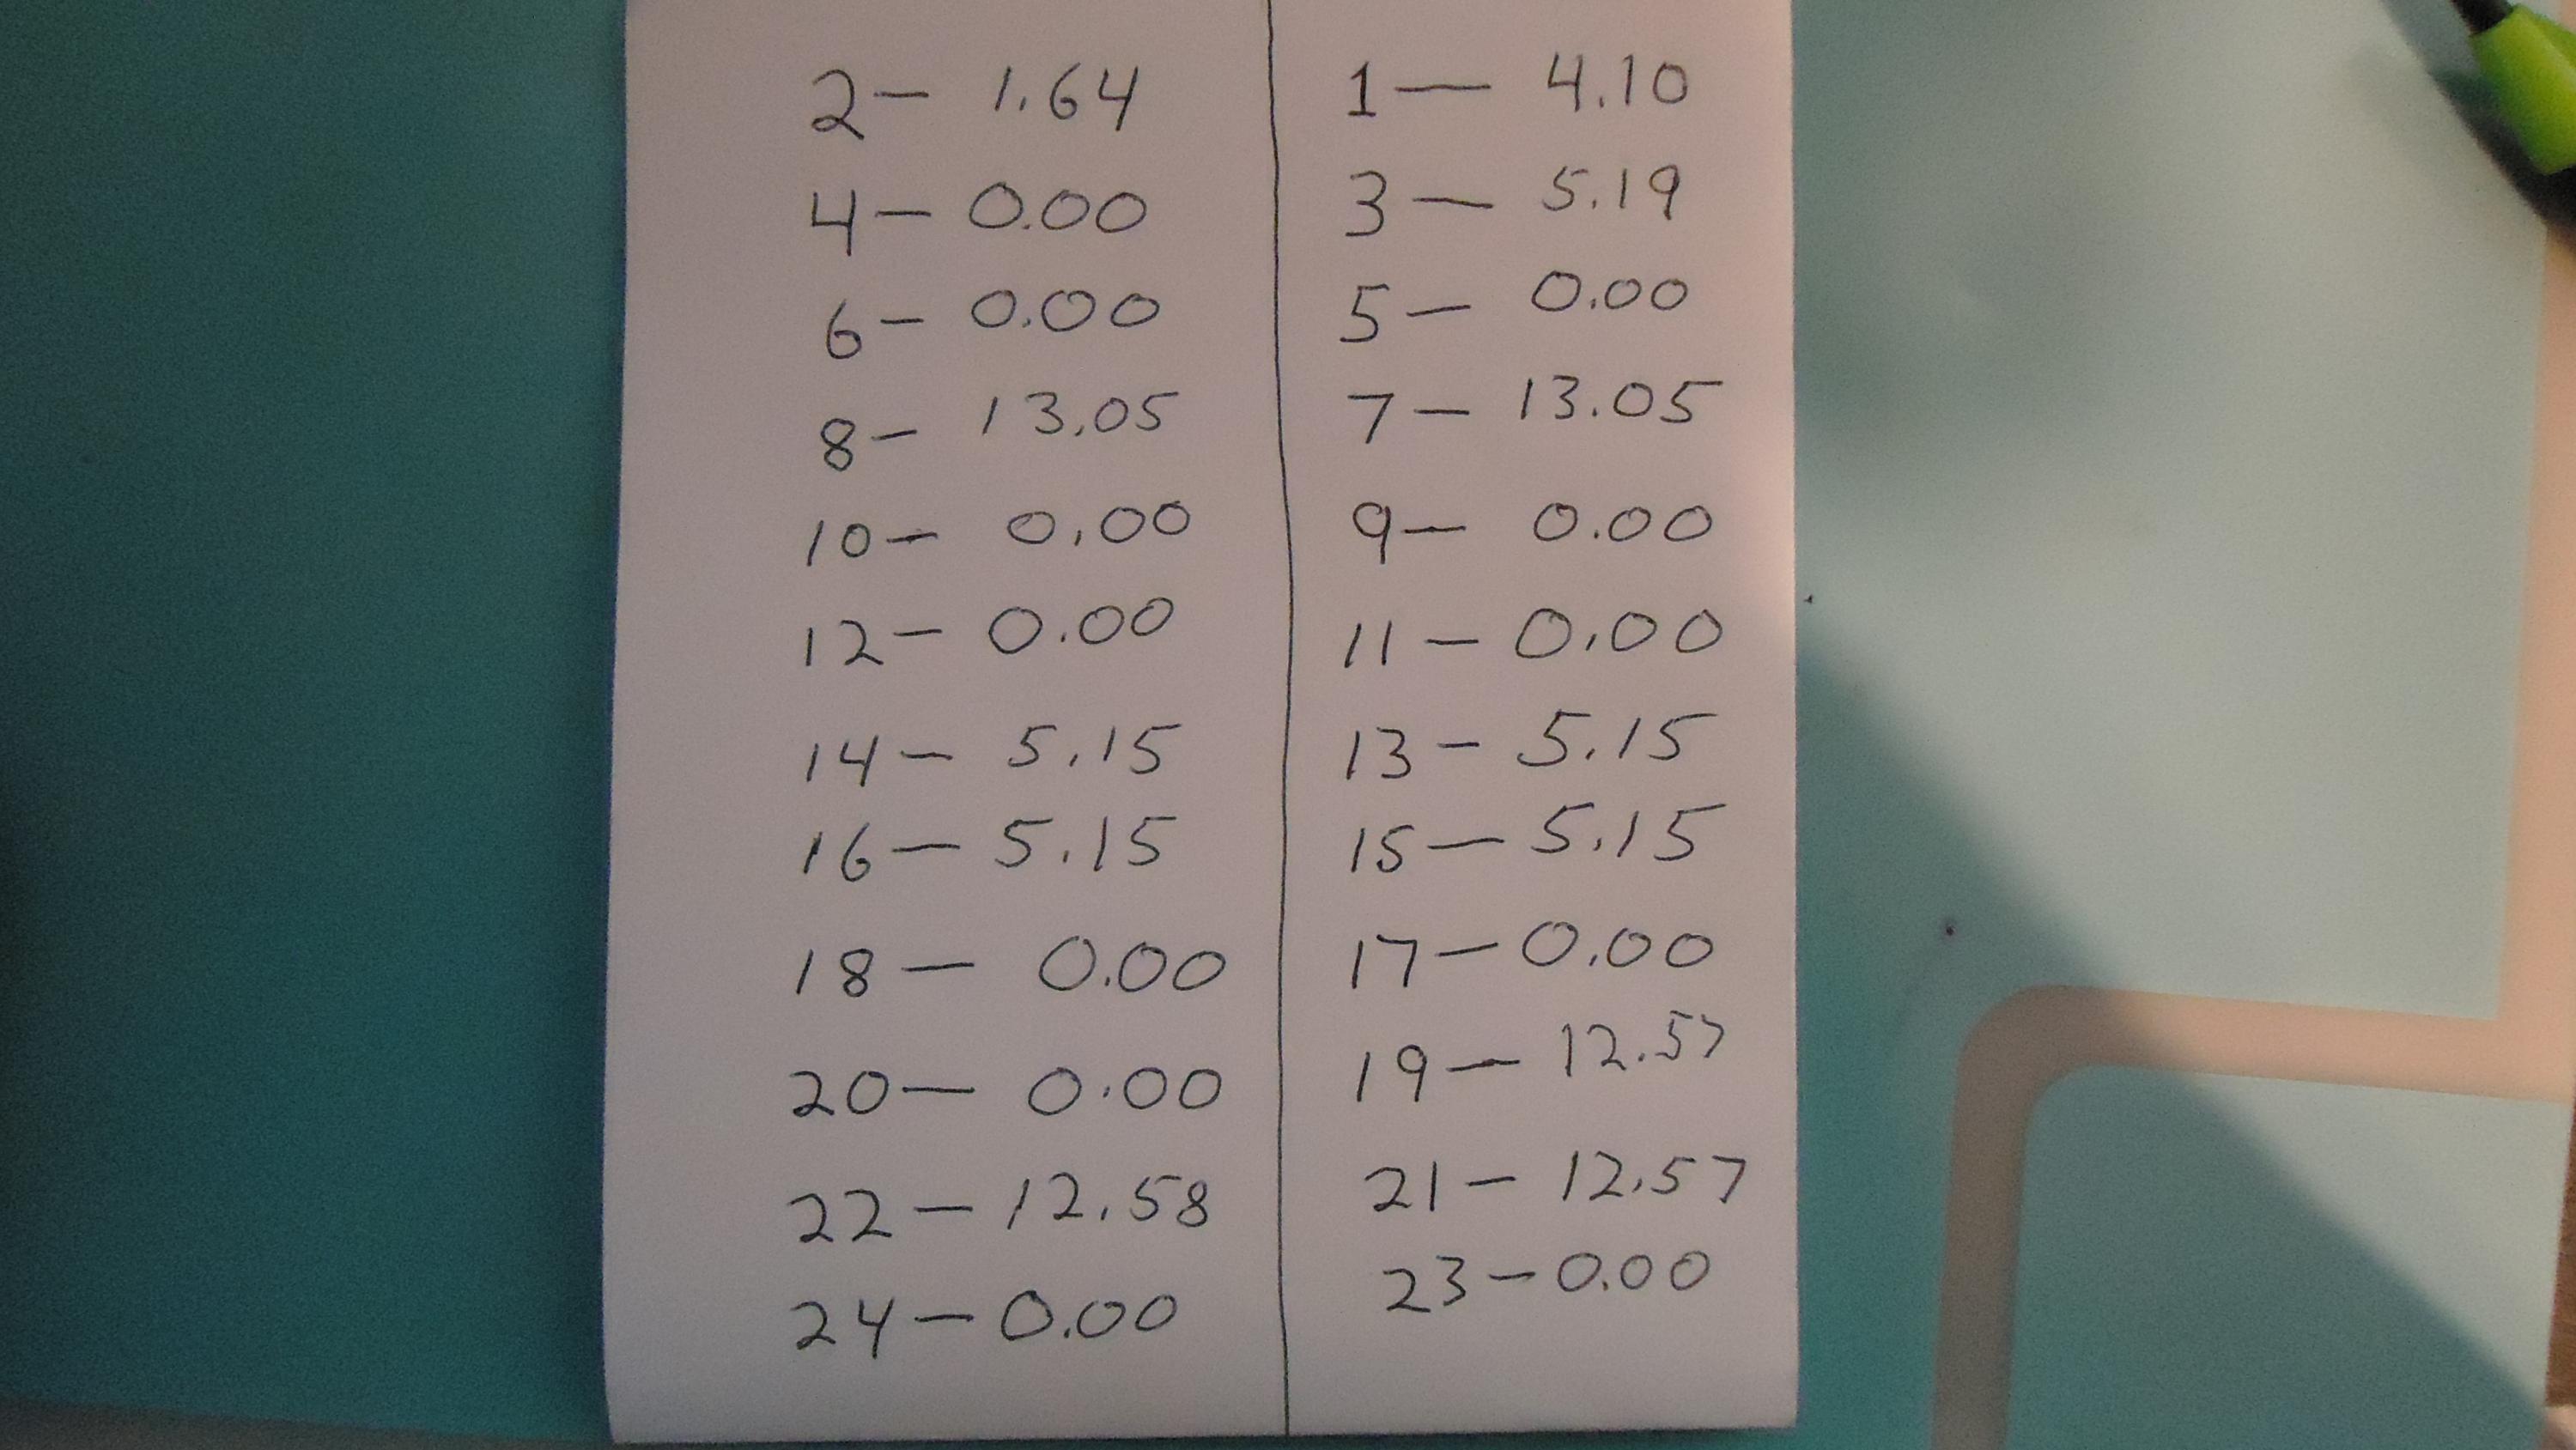 2— 1.64
4— 0.00
6— 0.00
8— 13.05
10— 0.00
12— 0.00
14— 5.15
16— 5.15
18— 0.00
20— 0.00
22— 12.58
24— 0.00
1— 4.10
3— 5.19
5— 0.00
7— 13.05
9— 0.00
11— 0.00
13— 5.15
15— 5.15
17— 0.00
19— 12.57
21— 12.57
23— 0.00